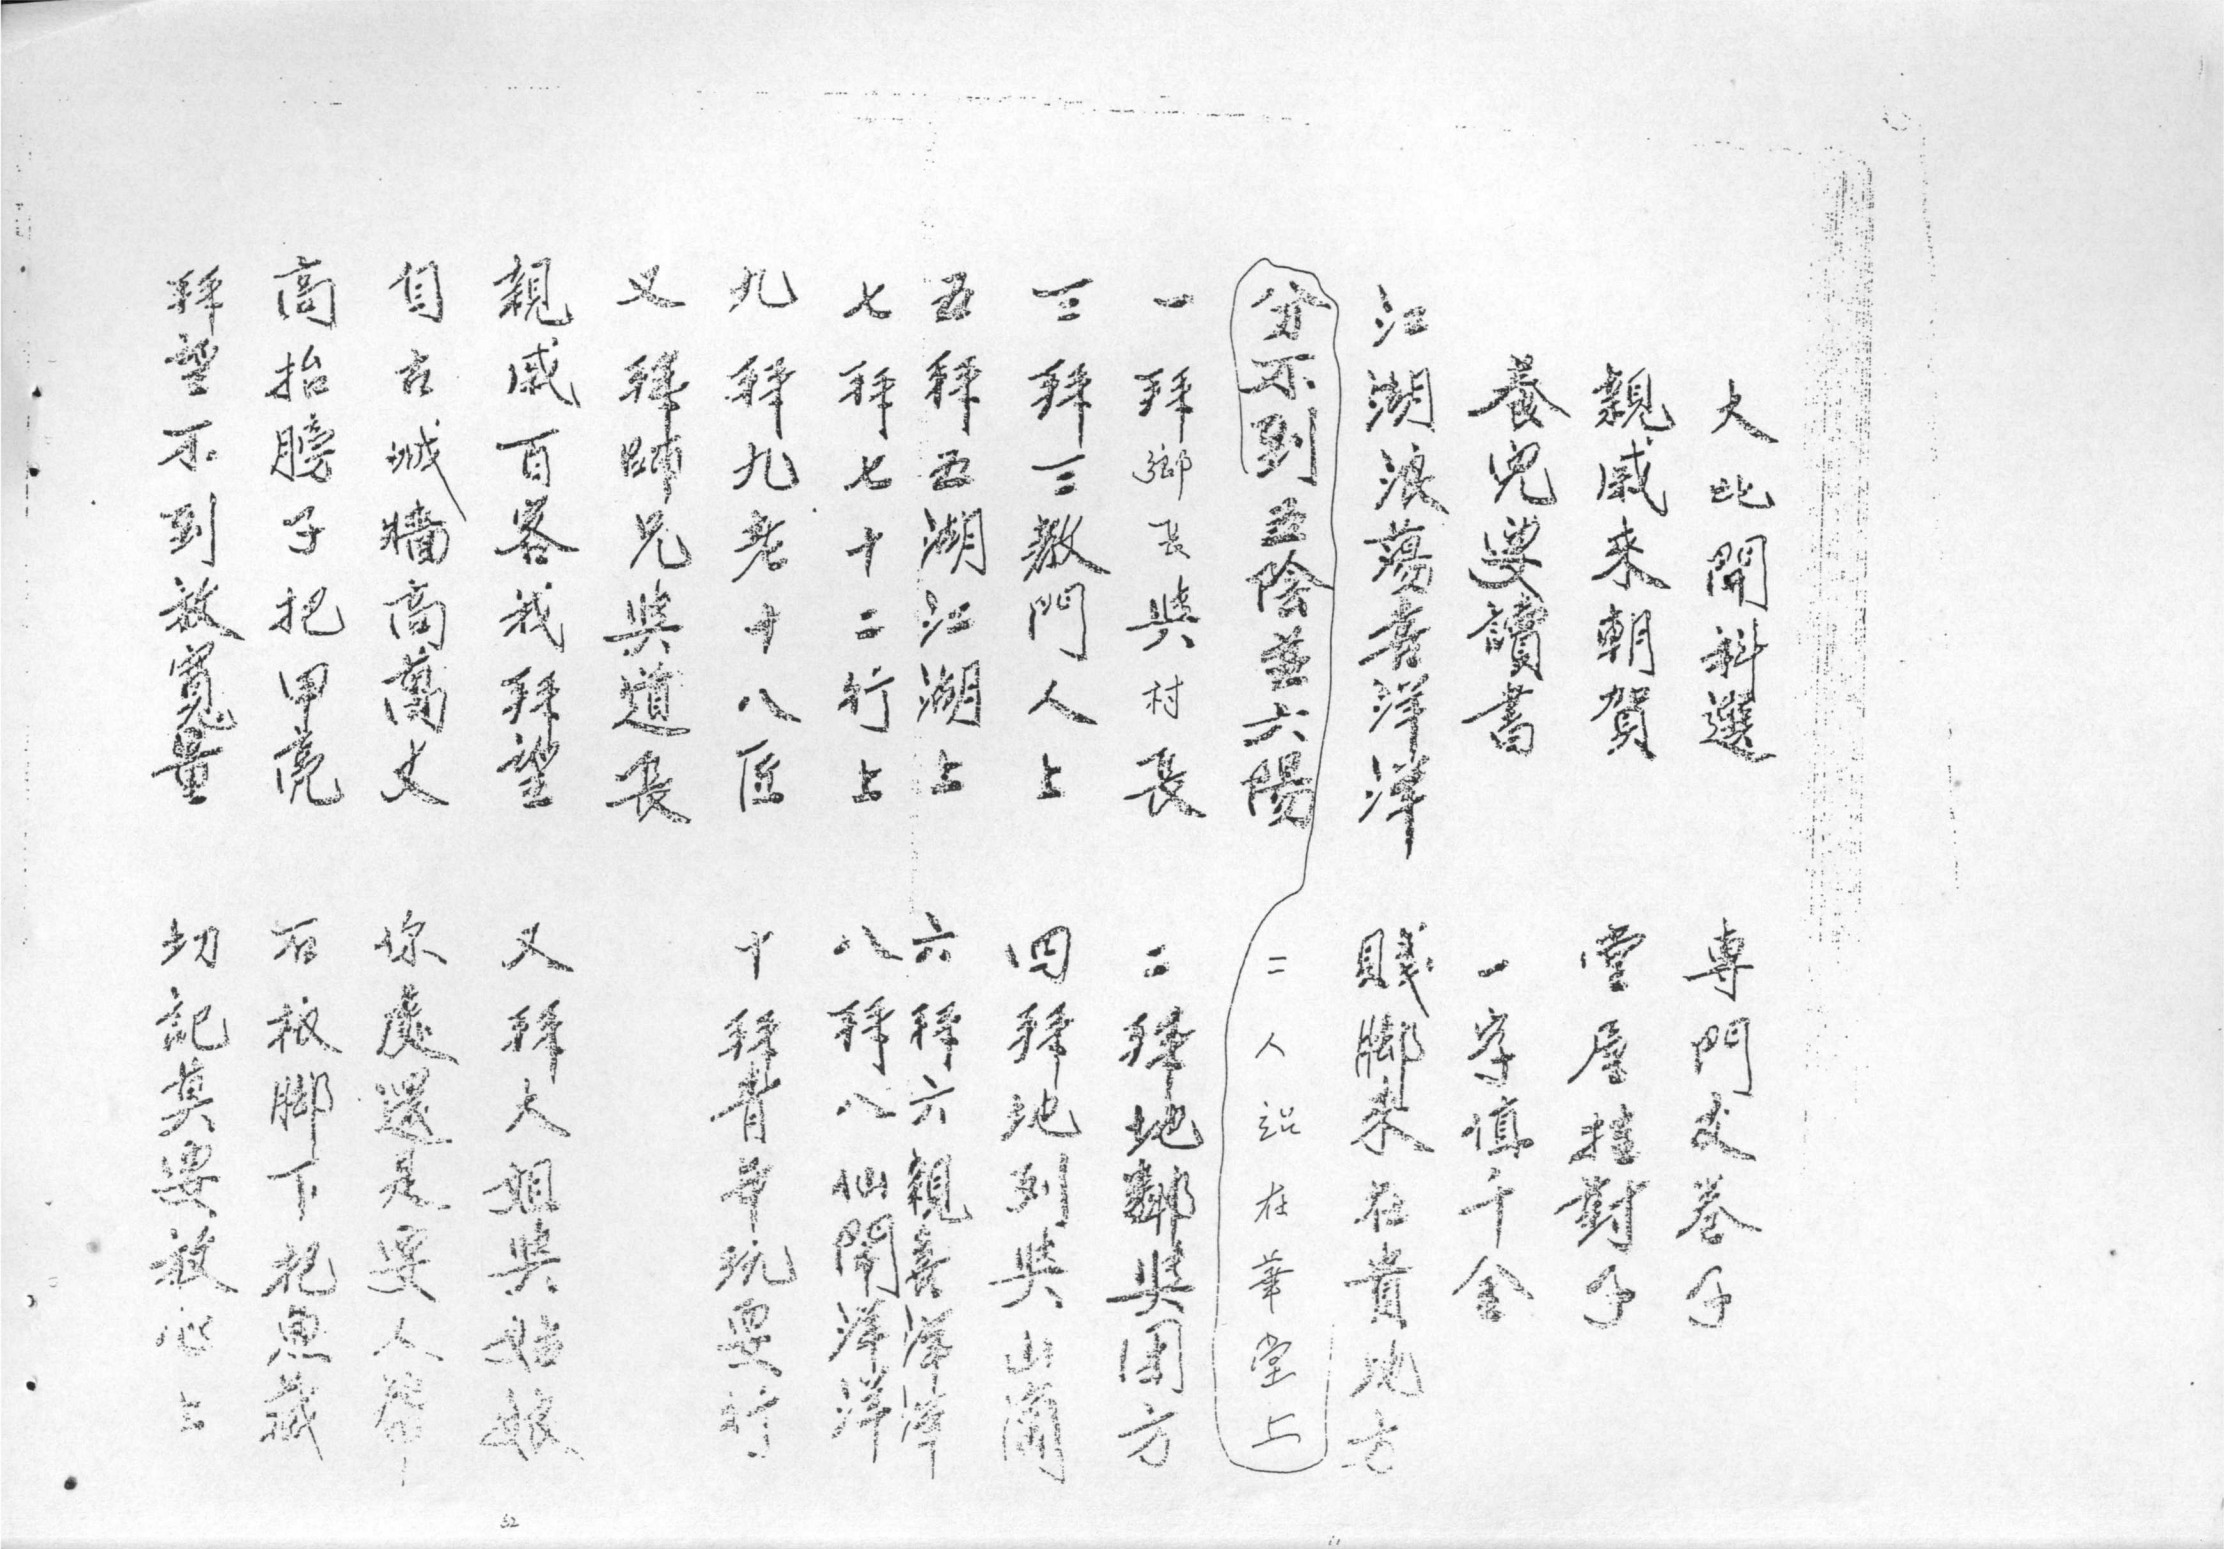 大比開科選 專門丈卷子
親戚來朝賀 堂屋挂對子
養兒要讀書 一字值千金
江湖浪蕩喜洋洋 賤脚來在貴地方
分不到五陰並六陽 二人站在華堂上
一拜鄉長與村長 二拜地鄰與團方
三拜三教門人上 四拜地列與山崗
五拜五湖江湖上 六拜六親喜洋洋
七拜七十二行上 八拜八仙鬧洋洋
九拜九老十八匠 十拜青年玩耍行
又拜師兄與道長
親戚百客我拜望 又拜大姐與姑娘
自古城墻高萬丈 你處還是要人幫
高抬膀子把甲亮 石板脚下把魚藏
拜望不到放寬量 切記莫要放心上